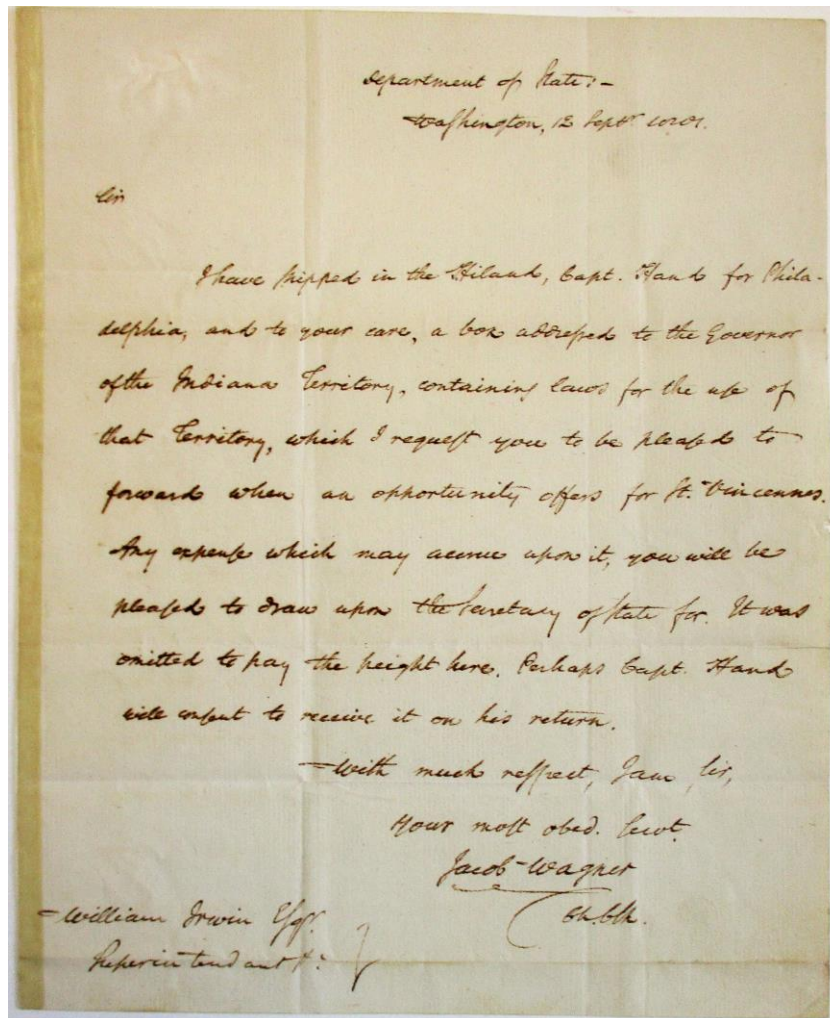 Department of State:-
Washington, 12 Septr. 1801.
Sir
I have shipped in the Hiland, Capt. Hand for Phila-
delphia, and to your care, a box addressed to the Governor
of the Indiana Territory, containing laws for the use of
that Territory, which I request you to be pleased to
forward when an opportunity offers for St. Vincennes.
Any expense which may accrue upon it, you will be
pleased to draw upon the Secretary of State for. It was
omitted to pay the freight here. Perhaps Capt. Hand
will consent to receive it on his return.
With much respect, I am, Sir,
Your most obed. servt.
Jacob Wagner
Ch. Clk.
William Irwin Esqr.
Superintendant &c.